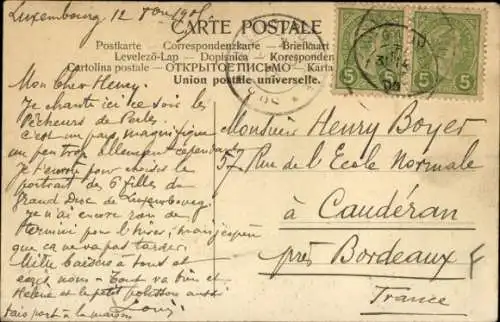 Luxembourg 12
CARTE POSTALE
Postkarte - Correspondenzkarte - Briefkaart
Levelező-Lap - Dopisnica - Koresponden
Cartolina postale - ОТКРЫТОЕ ПИСЬМО - Karta
Union postale universelle.
5 5 5
Mon Cher Henry.
Je chante ici ce soir les
Pêcheurs de Perles.
C'est un pays magnifique
un peu trop allemand cependant
Je t'envoie pour choisir le
portrait de 6 filles du
Grand Duc de Luxembourg.
Je n'ai encore rien de
terminé pour l'hiver,
que ça ne va pas tarder.
Mille baisers à tous et
Tout va bien et
Hélène et le petit polisson aussi
à la maison
Louis
Monsieur Henry Boyer
57, Rue de l'Ecole Normale
à Caudéran
près Bordeaux
France